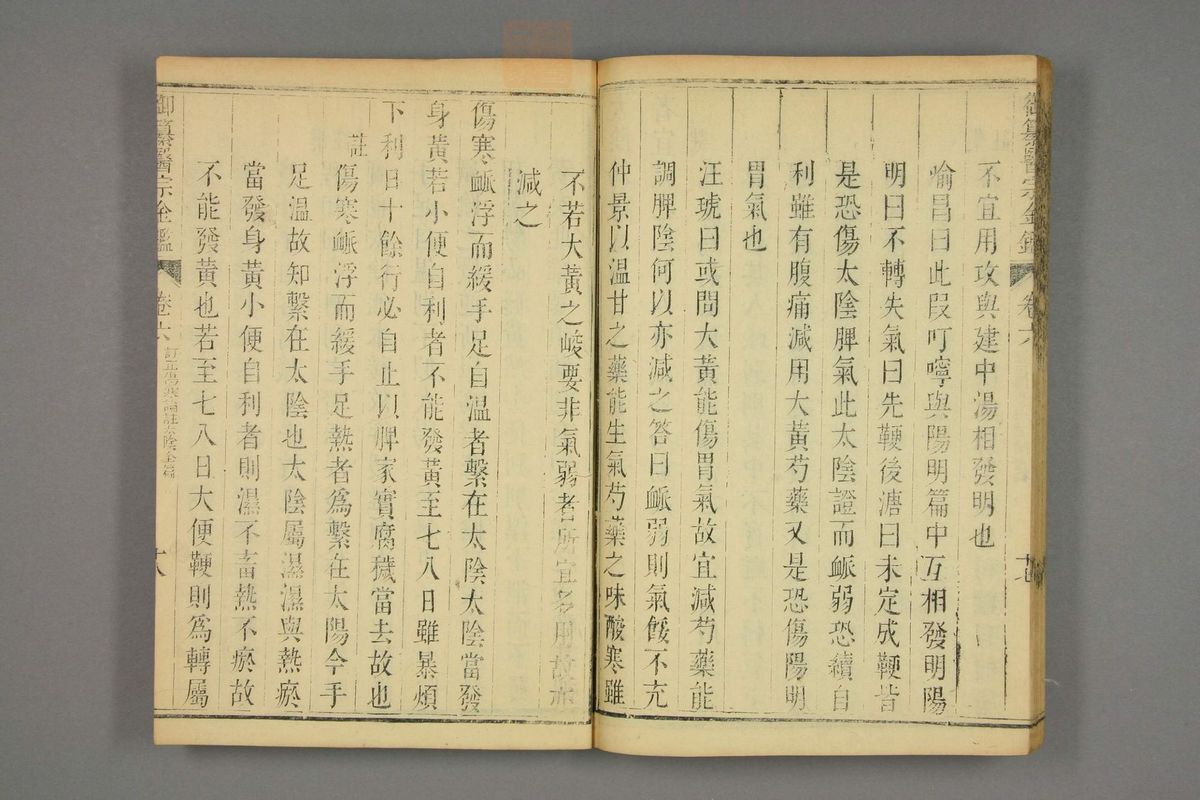 御纂醫宗金鑑 卷六
不宜用攻與建中湯相發明也
喻昌曰此段叮嚀與陽明篇中互相發明陽
明曰不轉失氣曰先鞕後溏曰未定成鞕皆
是恐傷太陰脾氣此太陰證而䘑弱恐續自
利雖有腹痛減用大黃芍藥又是恐傷陽明
胃氣也
汪琥曰或問大黃能傷胃氣故宜減芍藥能
調脾陰何以亦減之答曰䘑弱則氣餒不充
仲景以溫甘之藥能生氣芍藥之味酸寒雖
不若大黃之峻要非氣弱者所宜多用故亦
減之
傷寒䘑浮而緩手足自溫者繫在太陰太陰當發
身黃若小便自利者不能發黃至七八日雖暴煩
下利日十餘行必自止以脾家實腐穢當去故也
註傷寒䘑浮而緩手足熱者爲繫在太陽今手
足溫故知繫在太陰也太陰屬濕濕與熱瘀
當發身黃小便自利者則濕不畜熱不瘀故
不能發黃也若至七八日大便鞕則爲轉屬
御纂醫宗金鑑 卷六 訂正傷寒論註太陰全篇